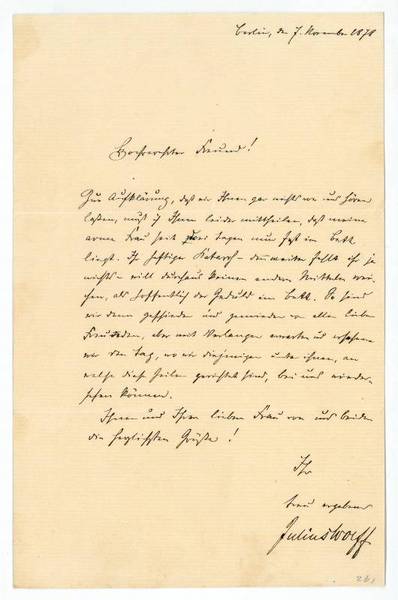 Berlin, den 7. November 1878
Hochverehrter Freund!
Zur Aufklärung, daß wir Ihnen gar nichts von uns hören
laßen, muß ich Ihnen leider mittheilen, daß meine
arme Frau seit drei Tagen nun fest im Bett
liegt. Ihr heftiger Katarrh – denn weiter fehlt ihr ja
nichts – will durchaus keinen andern Mitteln wei-
chen, als hoffentlich der Geduld im Bett. So sind
wir denn geschieden und gemieden von allen lieben
Freunden, aber mit Verlangen erwarten und ersehnen
wir den Tag, wo wir diejenigen unter ihnen, an
welche diese Zeilen gerichtet sind, bei uns wieder-
sehen können.
Ihnen und Ihrer lieben Frau von uns beiden
die herzlichsten Grüße!
Ihr
treu ergebener
Julius Wolff
26,